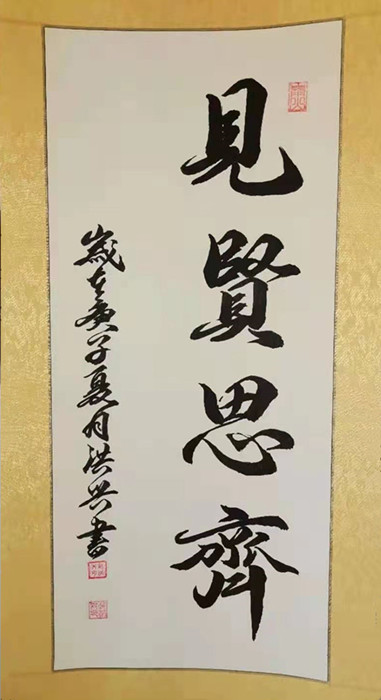 見賢思齊
歲在庚子夏月洪興書